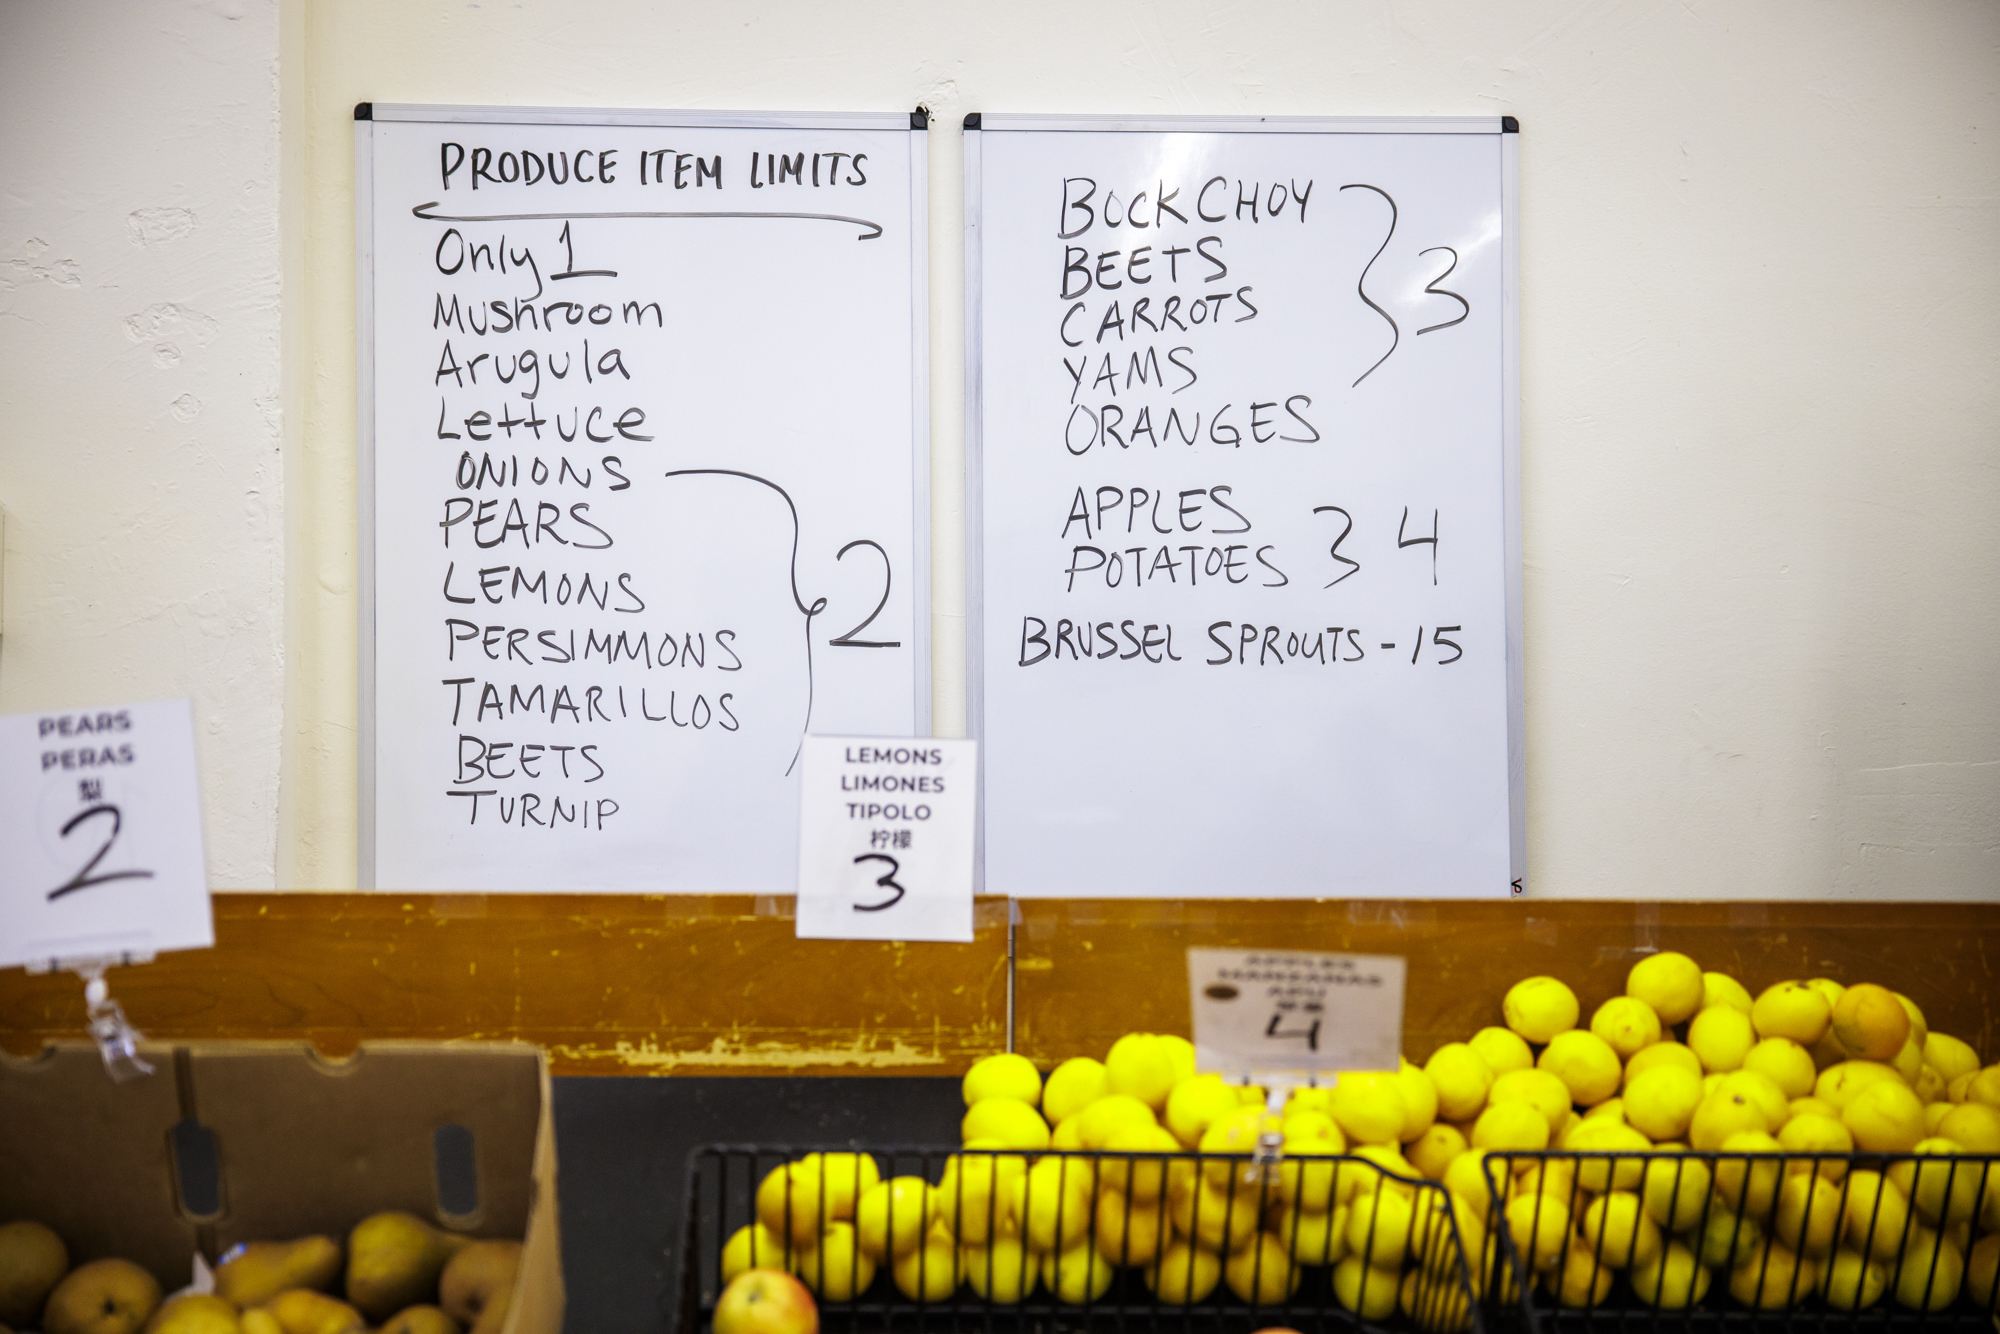 PRODUCE ITEM LIMITS
Only 1
Mushroom
Arugula
Lettuce
ONIONS
PEARS
LEMONS
PERSIMMONS
TAMARILLOS
BEETS
TURNIP
2
BOCK CHOY
BEETS
CARROTS
YAMS
3
ORANGES
APPLES
POTATOES
4
BRUSSEL SPROUTS - 15
PEARS
PERAS
梨
2
LEMONS
LIMONES
TIPOLO
柠檬
3
APPLES
MANZANAS
4